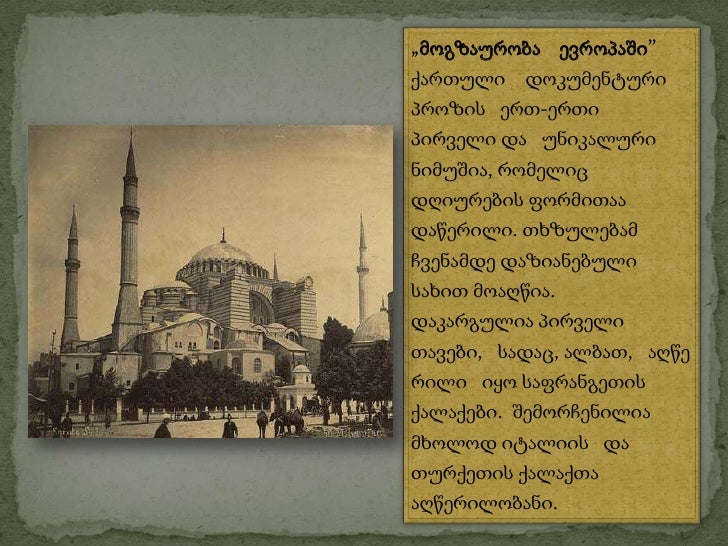 „მოგზაურობა ევროპაში”
ქართული დოკუმენტური
პროზის ერთ-ერთი
პირველი და უნიკალური
ნიმუშია, რომელიც
დღიურების ფორმითაა
დაწერილი. თხზულებამ
ჩვენამდე დაზიანებული
სახით მოაღწია.
დაკარგულია პირველი
თავები, სადაც, ალბათ, აღწე
რილი იყო საფრანგეთის
ქალაქები. შემორჩენილია
მხოლოდ იტალიის და
თურქეთის ქალაქთა
აღწერილობანი.